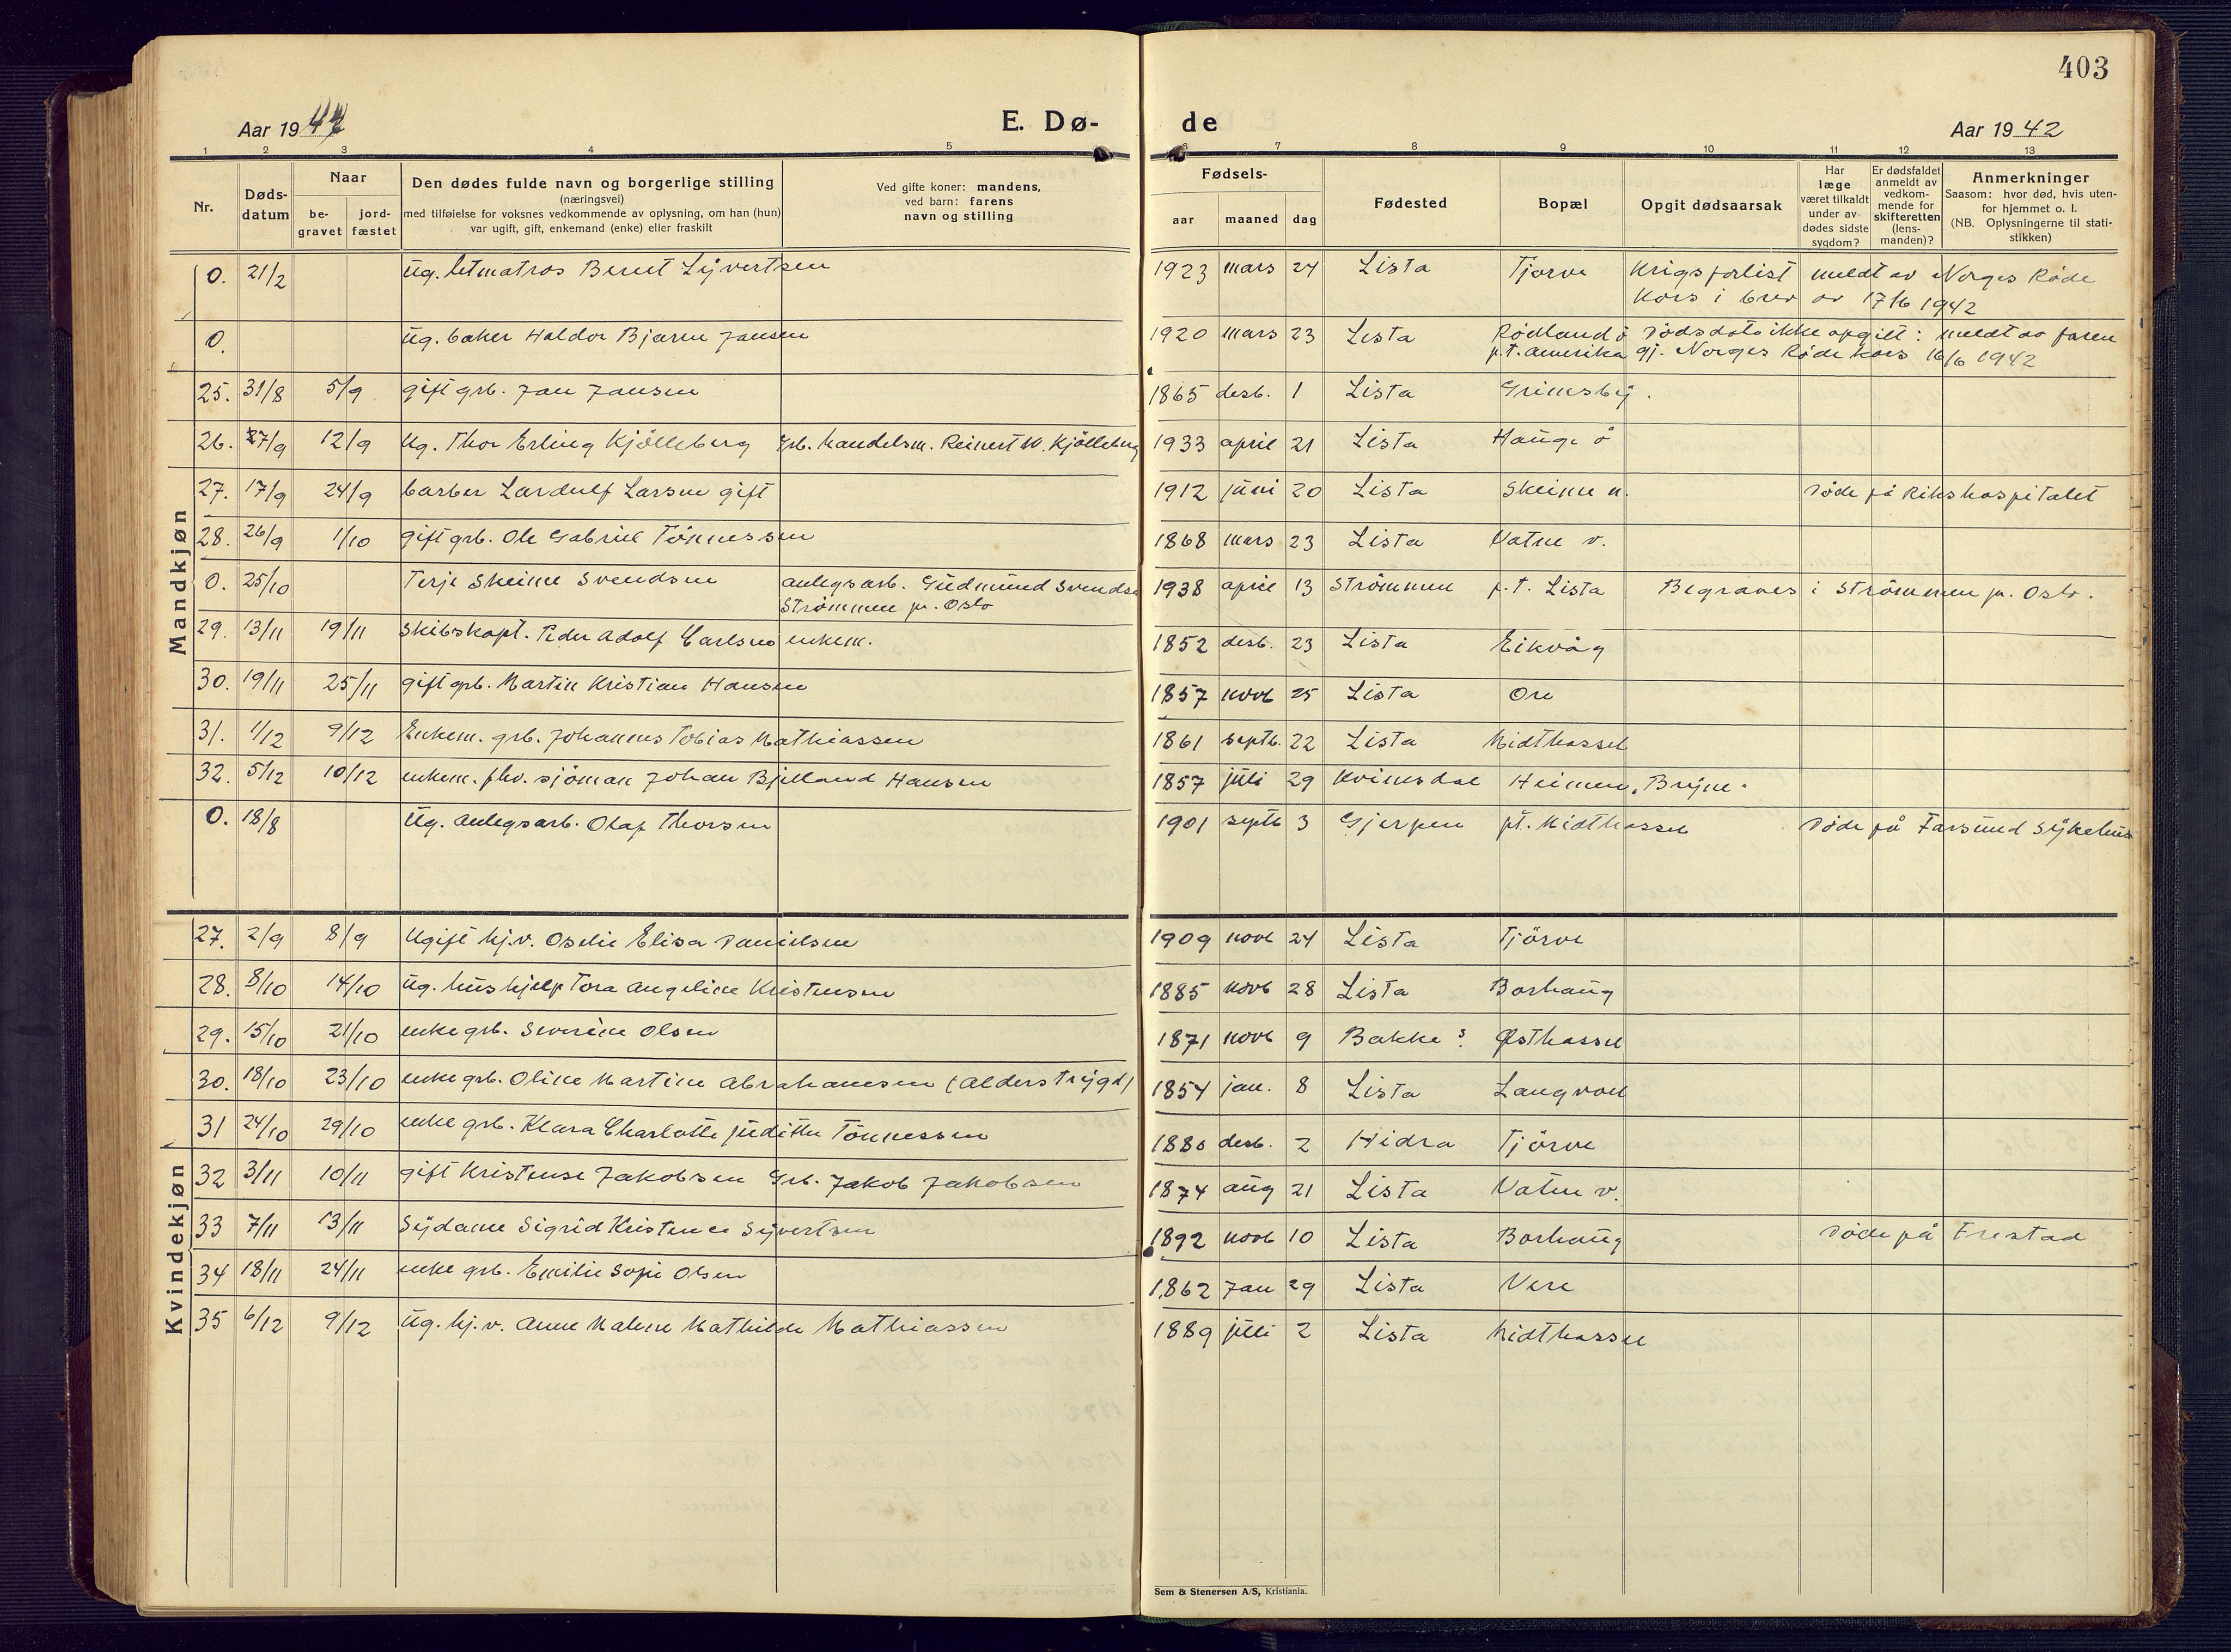 403
Aar 1942
E. Dø-
de
Aar 1942
1 2 3 4 5 6 7 8 9 10 11 12 13
Nr.
Døds-
datum
Naar
be-
gravet
jord-
fæstet
Den dødes fulde navn og borgerlige stilling
(næringsvei)
med tilføielse for voksnes vedkommende av oplysning, om han (hun)
var ugift, gift, enkemand (enke) eller fraskilt
Ved gifte koner: mandens,
ved barn: farens
navn og stilling
Fødsels-
aar maaned dag
Fødested
Bopæl
Opgit dødsaarsak
Har
læge
været tilkaldt
under av-
dødes sidste
sygdom?
Er dødsfaldet
anmeldt av
vedkom-
mende for
skifteretten
(lens-
manden)?
Anmerkninger
Saasom: hvor død, hvis uten-
for hjemmet o. l.
(NB. Oplysningerne til stati-
stikken)
Mandkjøn
0. 21/2 Ug. letmatros Bernt Syvertsen 1923 mars 24 Lista Tjørve Krigsforlist meldt av Norges Røde
Kors i brev av 17/6 1942
0. Ug. baker Haldor Bjarne Jansen 1920 mars 23 Lista Rødland ø Dødsdato ikke opgitt: meldt av faren
p.t. Amerika gj. Norges Røde Kors 16/6 1942
25. 31/8 5/9 gift grb. Jan Jansen 1865 desb. 1 Lista Grimsby.
26. 7/9 12/9 Ug. Thor Erling Kjölleberg Grb. handelsm. Reinert W. Kjölleberg 1933 april 21 Lista Hauge ö
27. 17/9 24/9 barber Lardulf Larsen gift 1912 juni 20 Lista Skeime n. Døde på Rikshospitalet
28. 26/9 1/10 gift grb. Ole Gabriel Tönnessen 1868 mars 23 Lista Vatne v.
0. 25/10 Terje Skeime Svendsen anlegsarb. Gudmund Svendsen 1938 april 13 Strömmen p.t. Lista Begraves i Strömmen pr. Oslo.
Strömmen pr. Oslo
29. 13/11 19/11 Skibskapt. Peder Adolf Carlsen enkem. 1852 desb. 23 Lista Eikvåg
30. 19/11 25/11 gift grb. Martin Kristian Hansen 1857 novb 25 Lista Ore
31. 1/12 9/12 Enkem. grb. Johannes Tobias Mathiassen 1861 septb. 22 Lista Midthassel
32. 5/12 10/12 enkem. fhv. sjöman Johan Bjelland Hansen 1857 juli 29 Kvinesdal Heimen, Bryne.
0. 18/8 Ug. Anlegsarb. Olaf Thorsen 1901 septb 3 Gjerpen pt. Midthassel Døde på Farsund Sykehus
Kvindekjøn
27. 2/9 8/9 Ugift hj.v. Oselie Elisa Danielsen 1909 novb 24 Lista Tjörve
28. 8/10 14/10 Ug. hushjelp Tora Angeline Kristensen 1885 novb 28 Lista Borhaug
29. 15/10 21/10 enke grb. Severine Olsen 1871 novb 9 Bakke s. Østhassel
30. 18/10 23/10 enke grb. Oline Martine Abrahamsen (Alderstrygd) 1854 jan. 8 Lista Langvoll
31 24/10 29/10 enke grb. Klara Charlotte Judithe Tönnessen 1880 desb. 2 Hidra Tjörve
32 3/11 10/11 gift Kristense Jakobsen Grb. Jakob Jakobsen 1874 aug 21 Lista Vatne v.
33 7/11 13/11 Sydame Sigrid Kristence Syvertsen 1892 novb 10 Lista Borhaug Døde på Frestad
34 18/11 24/11 enke grb. Emilie Sofi Olsen 1862 Jan 29 Lista Vere
35 6/12 9/12 Ug. hj.v. Anne Malene Mathilde Mathiassen 1889 juli 2 Lista Midthassel
Sem & Stenersen A/S, Kristiania.